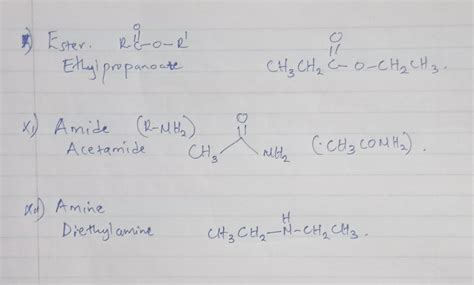 x) Ester. R-C-O-R' O
Ethylpropanoate CH3CH2 C-O-CH2CH3. O
xi) Amide (R-NH2) O
Acetamide CH3 NH2 (·CH3CONH2).
xii) Amine H
Diethylamine CH3CH2-N-CH2CH3.